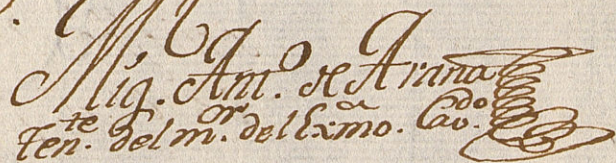 Mig. Antº. de Arana
Tenᵗᵉ. del mʳ. del Exmº. Cavᵈᵒ.